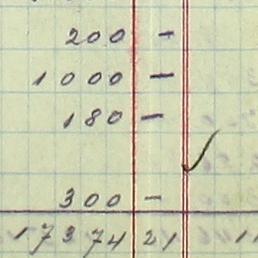 200 -
1000 -
180 -
300 -
17374 21